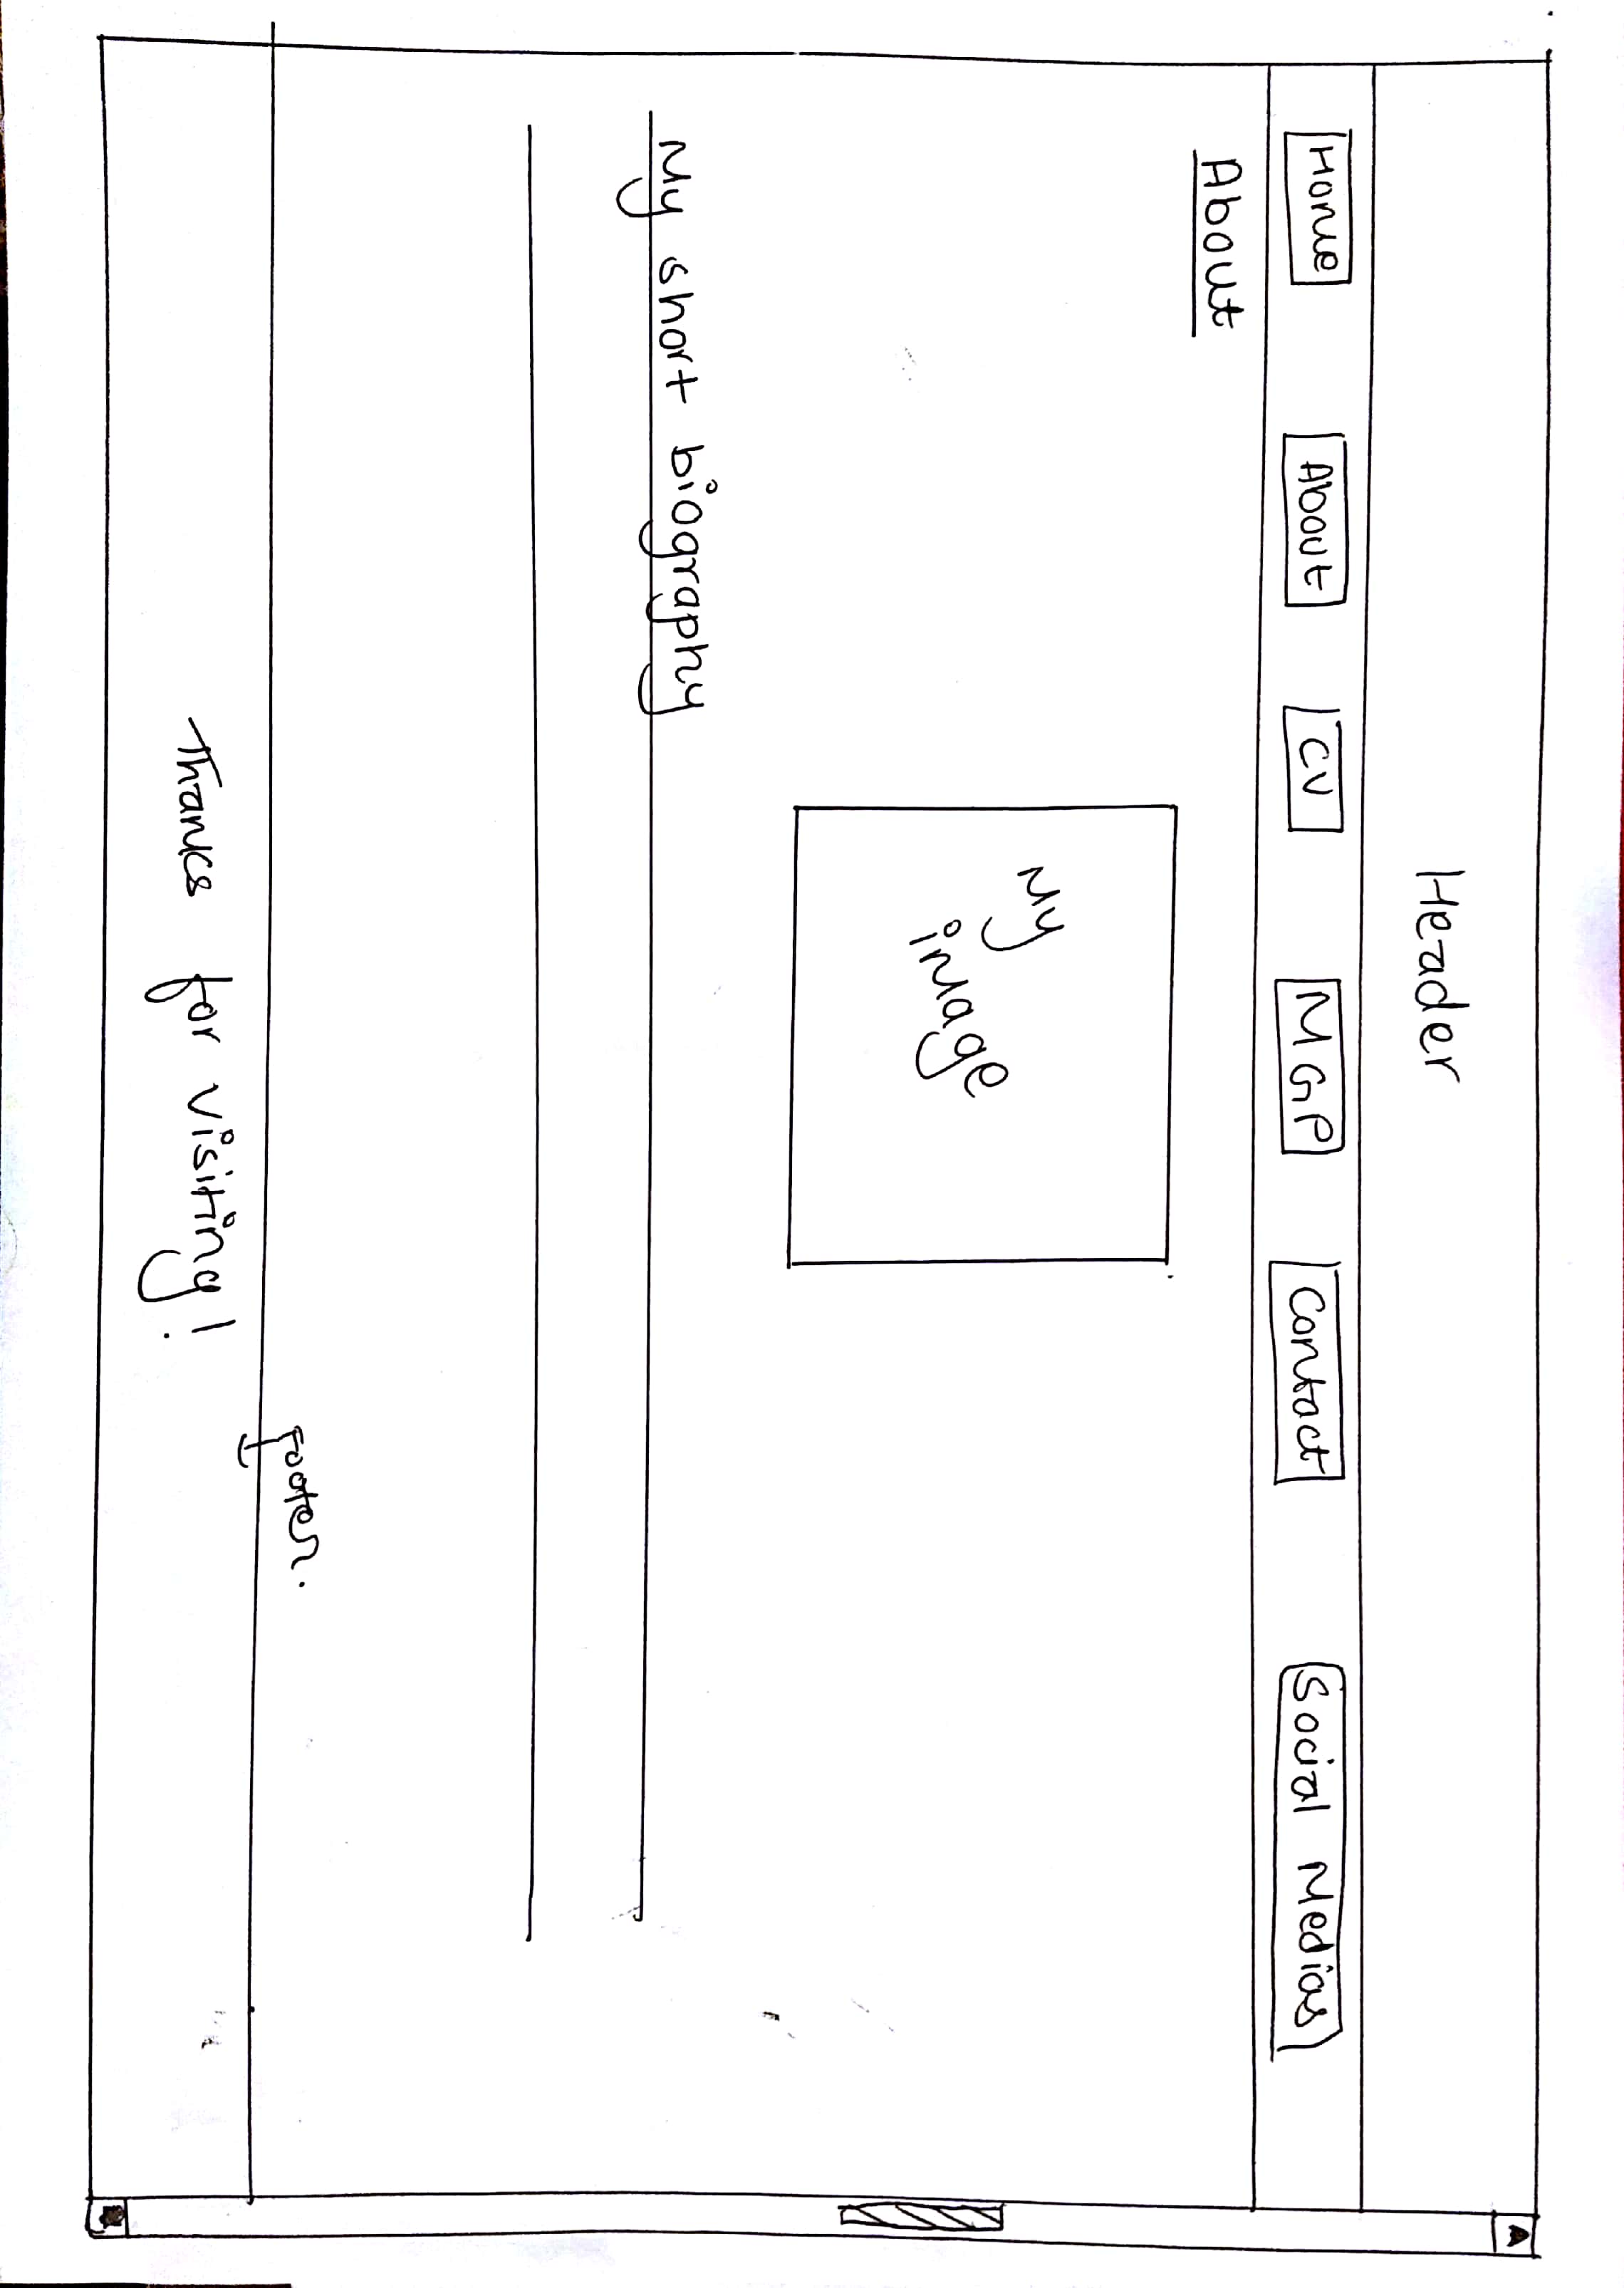 Header
Home About CV MGP Contact Social Medias
About
My
image
My short biography
Footer.
Thanks for visiting!